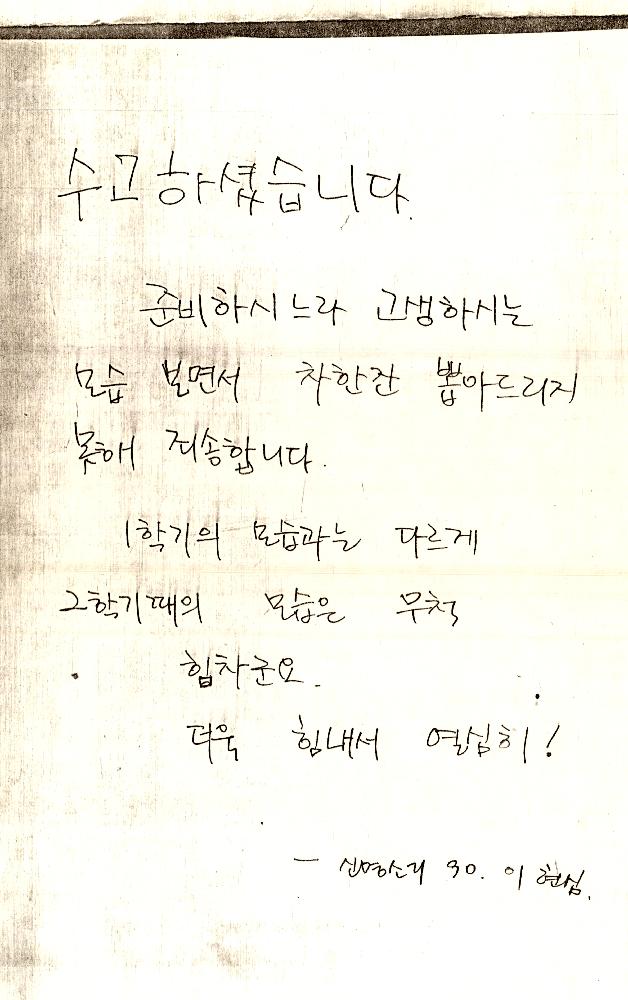 수고하셨습니다.
준비하시느라 고생하시는
모습 보면서 차한잔 뽑아드리지
못해 죄송합니다.
1학기의 모습과는 다르게
2학기때의 모습은 무척
힘차군요.
더욱 힘내서 열심히!
— 신명소리 90. 이현심.